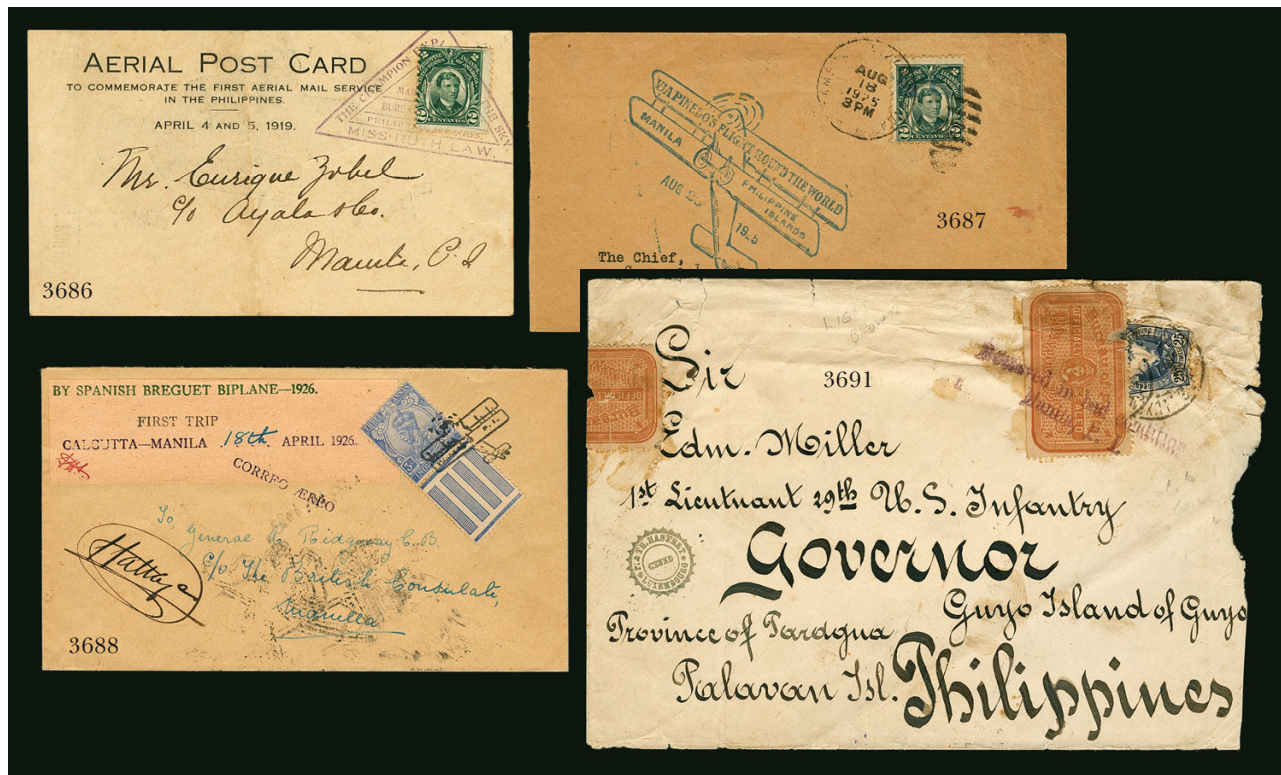 AERIAL POST CARD
TO COMMEMORATE THE FIRST AERIAL MAIL SERVICE
IN THE PHILIPPINES.
APRIL 4 AND 5, 1919.
THE CHAMPION
THE SKY
MISS RUTH LAW.
2 2
CENTAVOS
Mr. Enrique Zobel
c/o Ayala & Co.
Manila, P. I.
3686
AUG
18
1925
3 PM
2 2
CENTAVOS
VIA PINEDO'S FLIGHT ROUND THE WORLD
MANILA
PHILIPPINE
ISLANDS
AUG
1925
3687
The Chief,
BY SPANISH BREGUET BIPLANE—1926.
FIRST TRIP
CALCUTTA—MANILA 18th. APRIL 1926.
CORREO AEREO
To, General R. Ridgway. C. B.
c/o The British Consulate,
Manilla
3688
Sir
3691
Edm. Miller
1st Lieutnant 29th U. S. Infantry
Governor
Guyo Island of Guyo
Province of Paragua
Palavan Isl. Philippines
P. & TH. HASTRAT
LUXEMBOURG
OFFICIAL
25 25